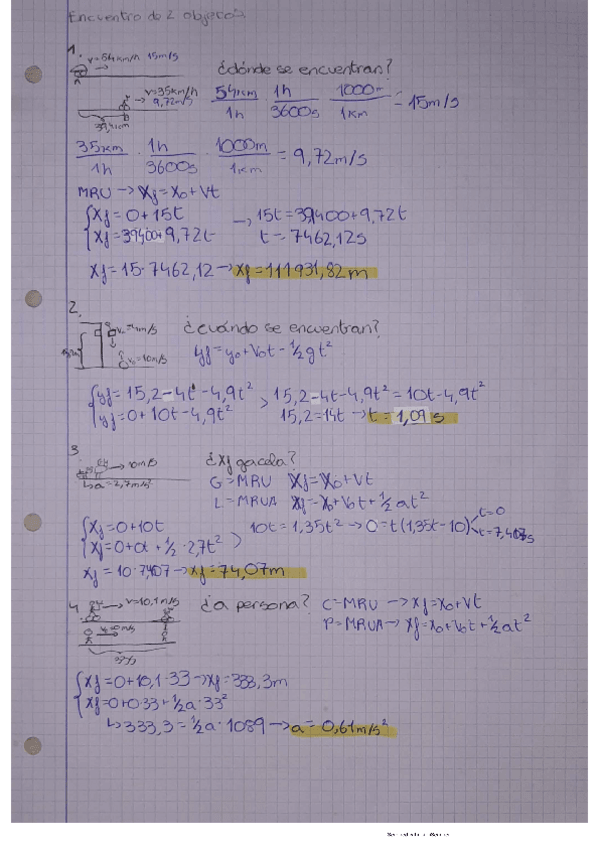 Encuentro de 2 objetos
1.
v=54km/h 15m/s
¿dónde se encuentran?
v=35km/h
9,72m/s
39,4km
54km/1h · 1h/3600s · 1000m/1km = 15m/s
35km/1h · 1h/3600s · 1000m/1km = 9,72m/s
MRU → xf = x0 + vt
{xf = 0 + 15t
{xf = 39400 + 9,72t
→ 15t = 39400 + 9,72t
t = 7462,12s
xf = 15 · 7462,12 → xf = 111931,82m
2.
v0=4m/s
v0=10m/s
¿cuándo se encuentran?
yf = y0 + v0t - ½gt²
{yf = 15,2 - 4t - 4,9t²
{yf = 0 + 10t - 4,9t²
> 15,2 - 4t - 4,9t² = 10t - 4,9t²
15,2 = 14t → t = 1,09s
3
10m/s
↳ a = 2,7m/s²
¿xf gacela?
G = MRU xf = x0 + vt
L = MRUA xf = x0 + v0t + ½at²
{xf = 0 + 10t
{xf = 0 + 0t + ½ · 2,7t²
> 10t = 1,35t² → 0 = t(1,35t - 10)
t = 0
t = 7,407s
xf = 10 · 7,407 → xf = 74,07m
4
v=10,1m/s
¿a persona?
C = MRU → xf = x0 + vt
P = MRUA → xf = x0 + v0t + ½at²
{xf = 0 + 10,1 · 33 → xf = 333,3m
{xf = 0 + 0·33 + ½a · 33²
↳ 333,3 = ½a · 1089 → a = 0,61m/s²